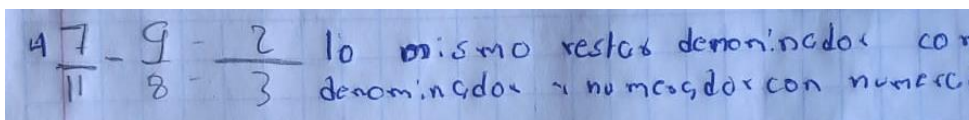 4 7/11 - 9/8 = 2/3 lo mismo restas denominador con
denominador y numerador con numerc